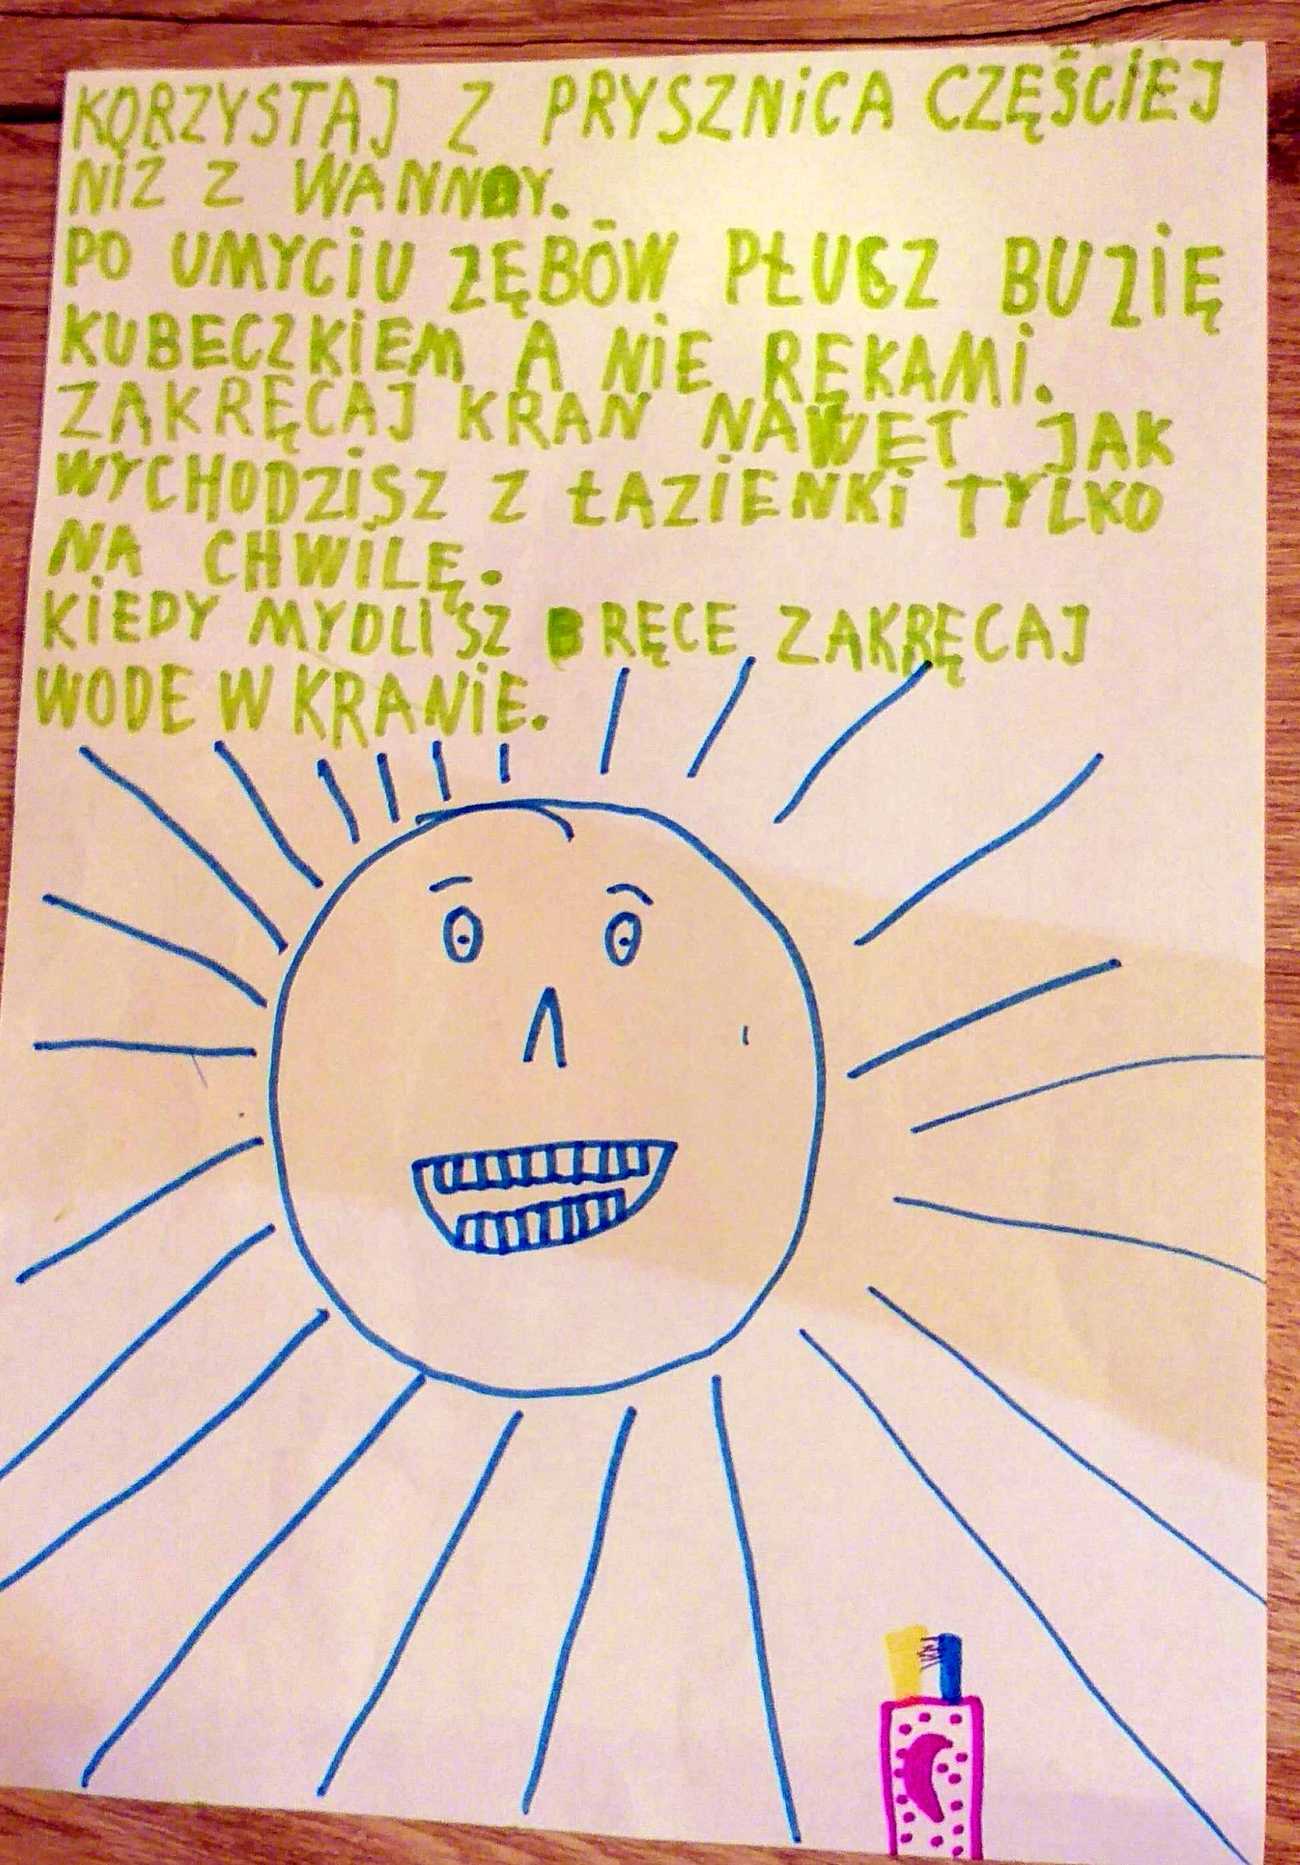 KORZYSTAJ Z PRYSZNiCA CZĘŚCiEJ
NiŻ Z WANNY.
PO UMYCiU ZĘBÓW PŁUCZ BUZiĘ
KUBECZKiEM A NiE RĘKAMi.
ZAKRĘCAJ KRAN NAWET JAK
WYCHODZiSZ Z ŁAZiENKi TYLKO
NA CHWiLĘ.
KiEDY MYDLiSZ RĘCE ZAKRĘCAJ
WODE W KRANiE.